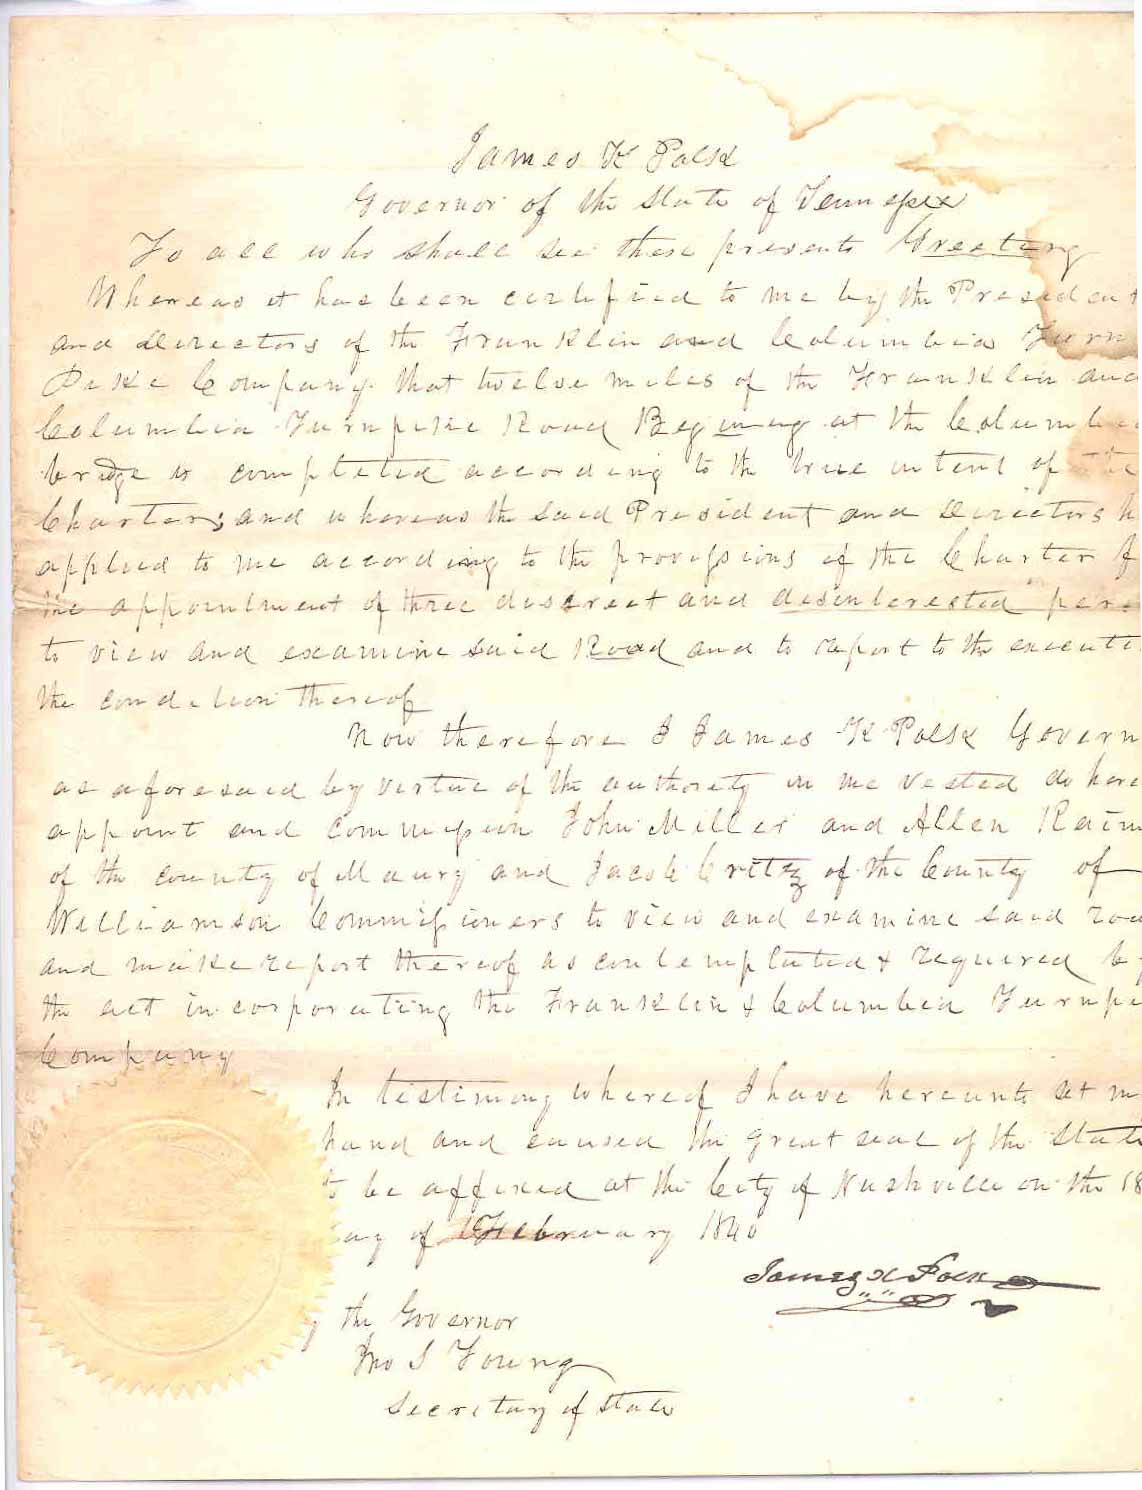 James K Polk
Governor of the State of Tennessee
To all who shall see these presents Greeting
Whereas it has been certified to me by the President
and Directors of the Franklin and Columbia Turn
Pike Company that twelve miles of the Franklin and
Columbia Turnpike Road Begining at the Columbia
bridge is completed according to the true intent of the
Charter; and whereas the said President and Directors h
applied to me according to the provissions of the Charter f
the appointment of three discreet and desinterested pers
to view and examine said Road and to report to the executi
the condition thereof
Now therefore I James K Polk Govern
as aforesaid by virtue of the authority in me vested do here
appoint and commission John Miller and Allen Rain
of the county of Maury and Jacob Critz of the County of
Williamson Commissioners to view and examine said roa
and make report thereof as contemplated & required by
the act in corporating the Franklin & Columbia Turnpi
Company
In testimony whereof I have hereunto set m
hand and caused the great seal of the State
to be affixed at the City of Nashville on the 18
ay of February 1840
James K Polk
the Governor
Jno S Young
Secretary of State